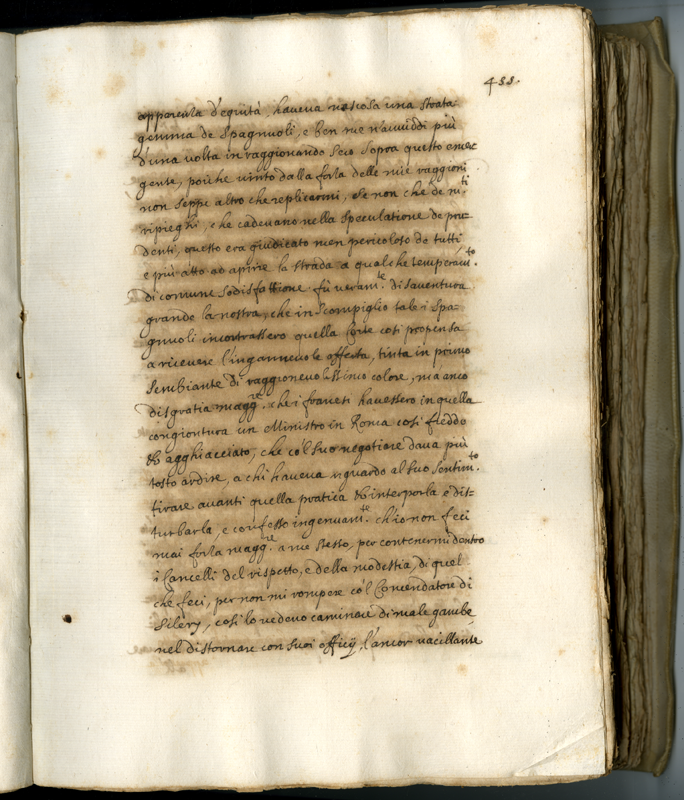 433.
apparenza d'equità, haveva nascosa una strata-
gemma de Spagnuoli, e ben me n'avviddi più
d'una volta in raggionando seco sopra questo emer
gente, poiche vinto dalla forza delle mie raggioni
non seppe altro che replicarmi, se non che de m.ti
ripieghi, che cadevano nella speculatione de pru-
denti, questo era giudicato men pericoloso de tutti
e più atto ad aprire la strada a qualche temperam.to
di comune sodisfattione. fù veram.te disaventura
grande la nostra, che in scompiglio tale i Spa-
gnuoli incontrassero quella Corte così propensa
a ricevere l'ingannevole offerta, tinta in primo
sembiante di raggionevolissimo colore, ma anco
disgratia magg.re che i francesi havessero in quella
congiontura un Ministro in Roma così freddo
et agghiacciato, che co'l suo negotiare dava più
tosto ardire, a chi haveva riguardo al suo sentim.to
tirare avanti quella pratica et interporla e dis-
turbarla, e confesso ingenuam.te ch'io non feci
mai forza magg.re a me stesso, per contenermi dentro
i Cancelli del rispetto, e della modestia, di quel
che feci, per non mi rompere co'l Comendatore di
Silery, così lo vedevo caminar di male gambe
nel distornare con suoi officij, l'ancor vacillante